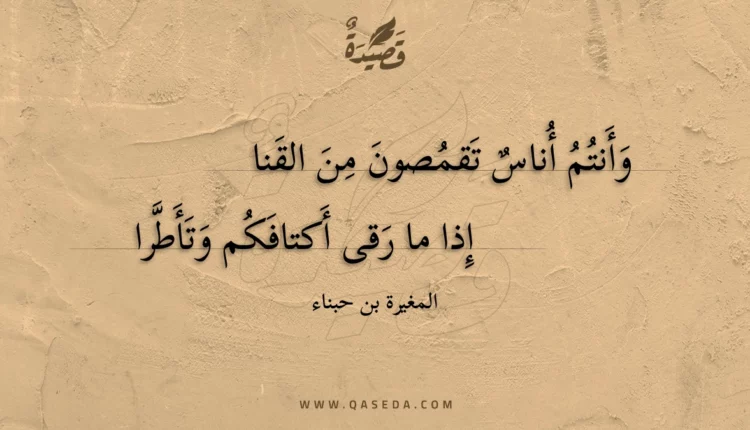 قَصِيدَةٌ
وَأَنتُمُ أُناسٌ تَقمُصونَ مِنَ القَنا
إِذا ما رَقى أَكتافَكُم وَتَأَطَّرا
المغيرة بن حبناء
WWW.QASEDA.COM